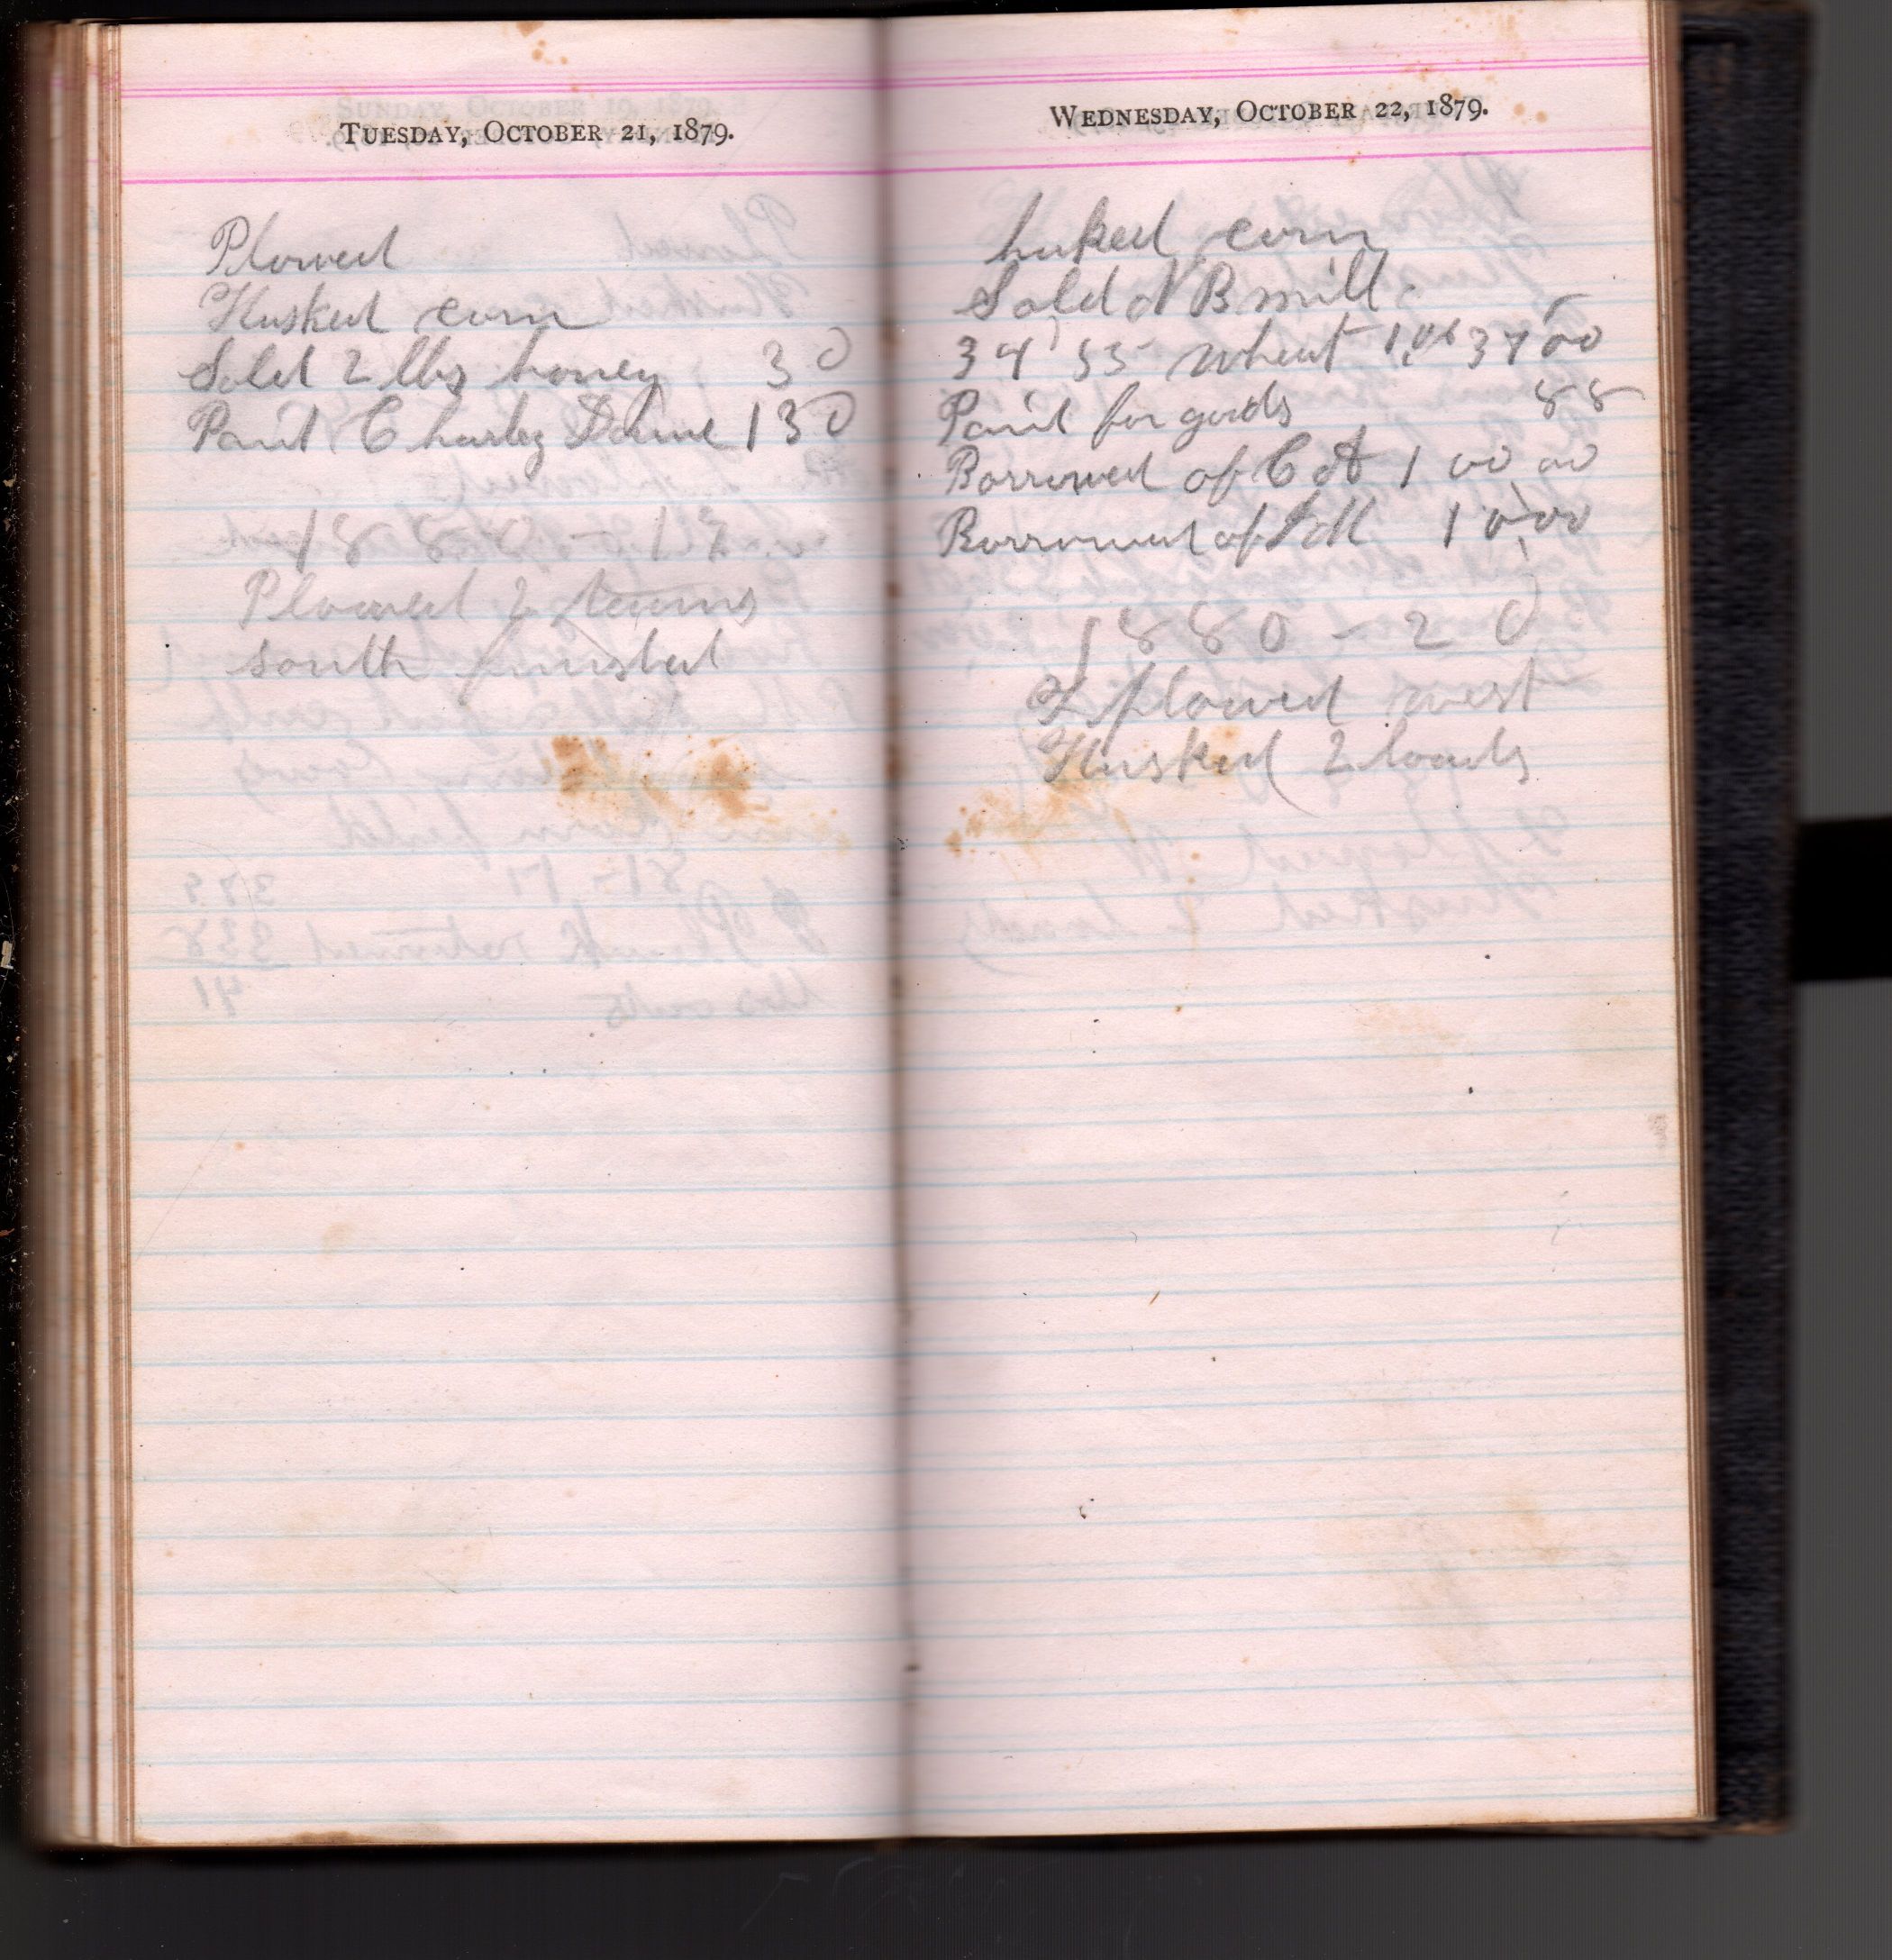 TUESDAY, OCTOBER 21, 1879.
Plowed
Husked corn
Sold 2 lbs honey 30
Paid Charley 130
1880-19
Plowed 2 teams
south finished
WEDNESDAY, OCTOBER 22, 1879.
huked corn
Sold N B mill
34 55 wheat 37 00
Paid for goods 88
Borrowed of C A 1 00 00
Borrowed of 10.00
1880-20
I plowed west
Husked 2 loads